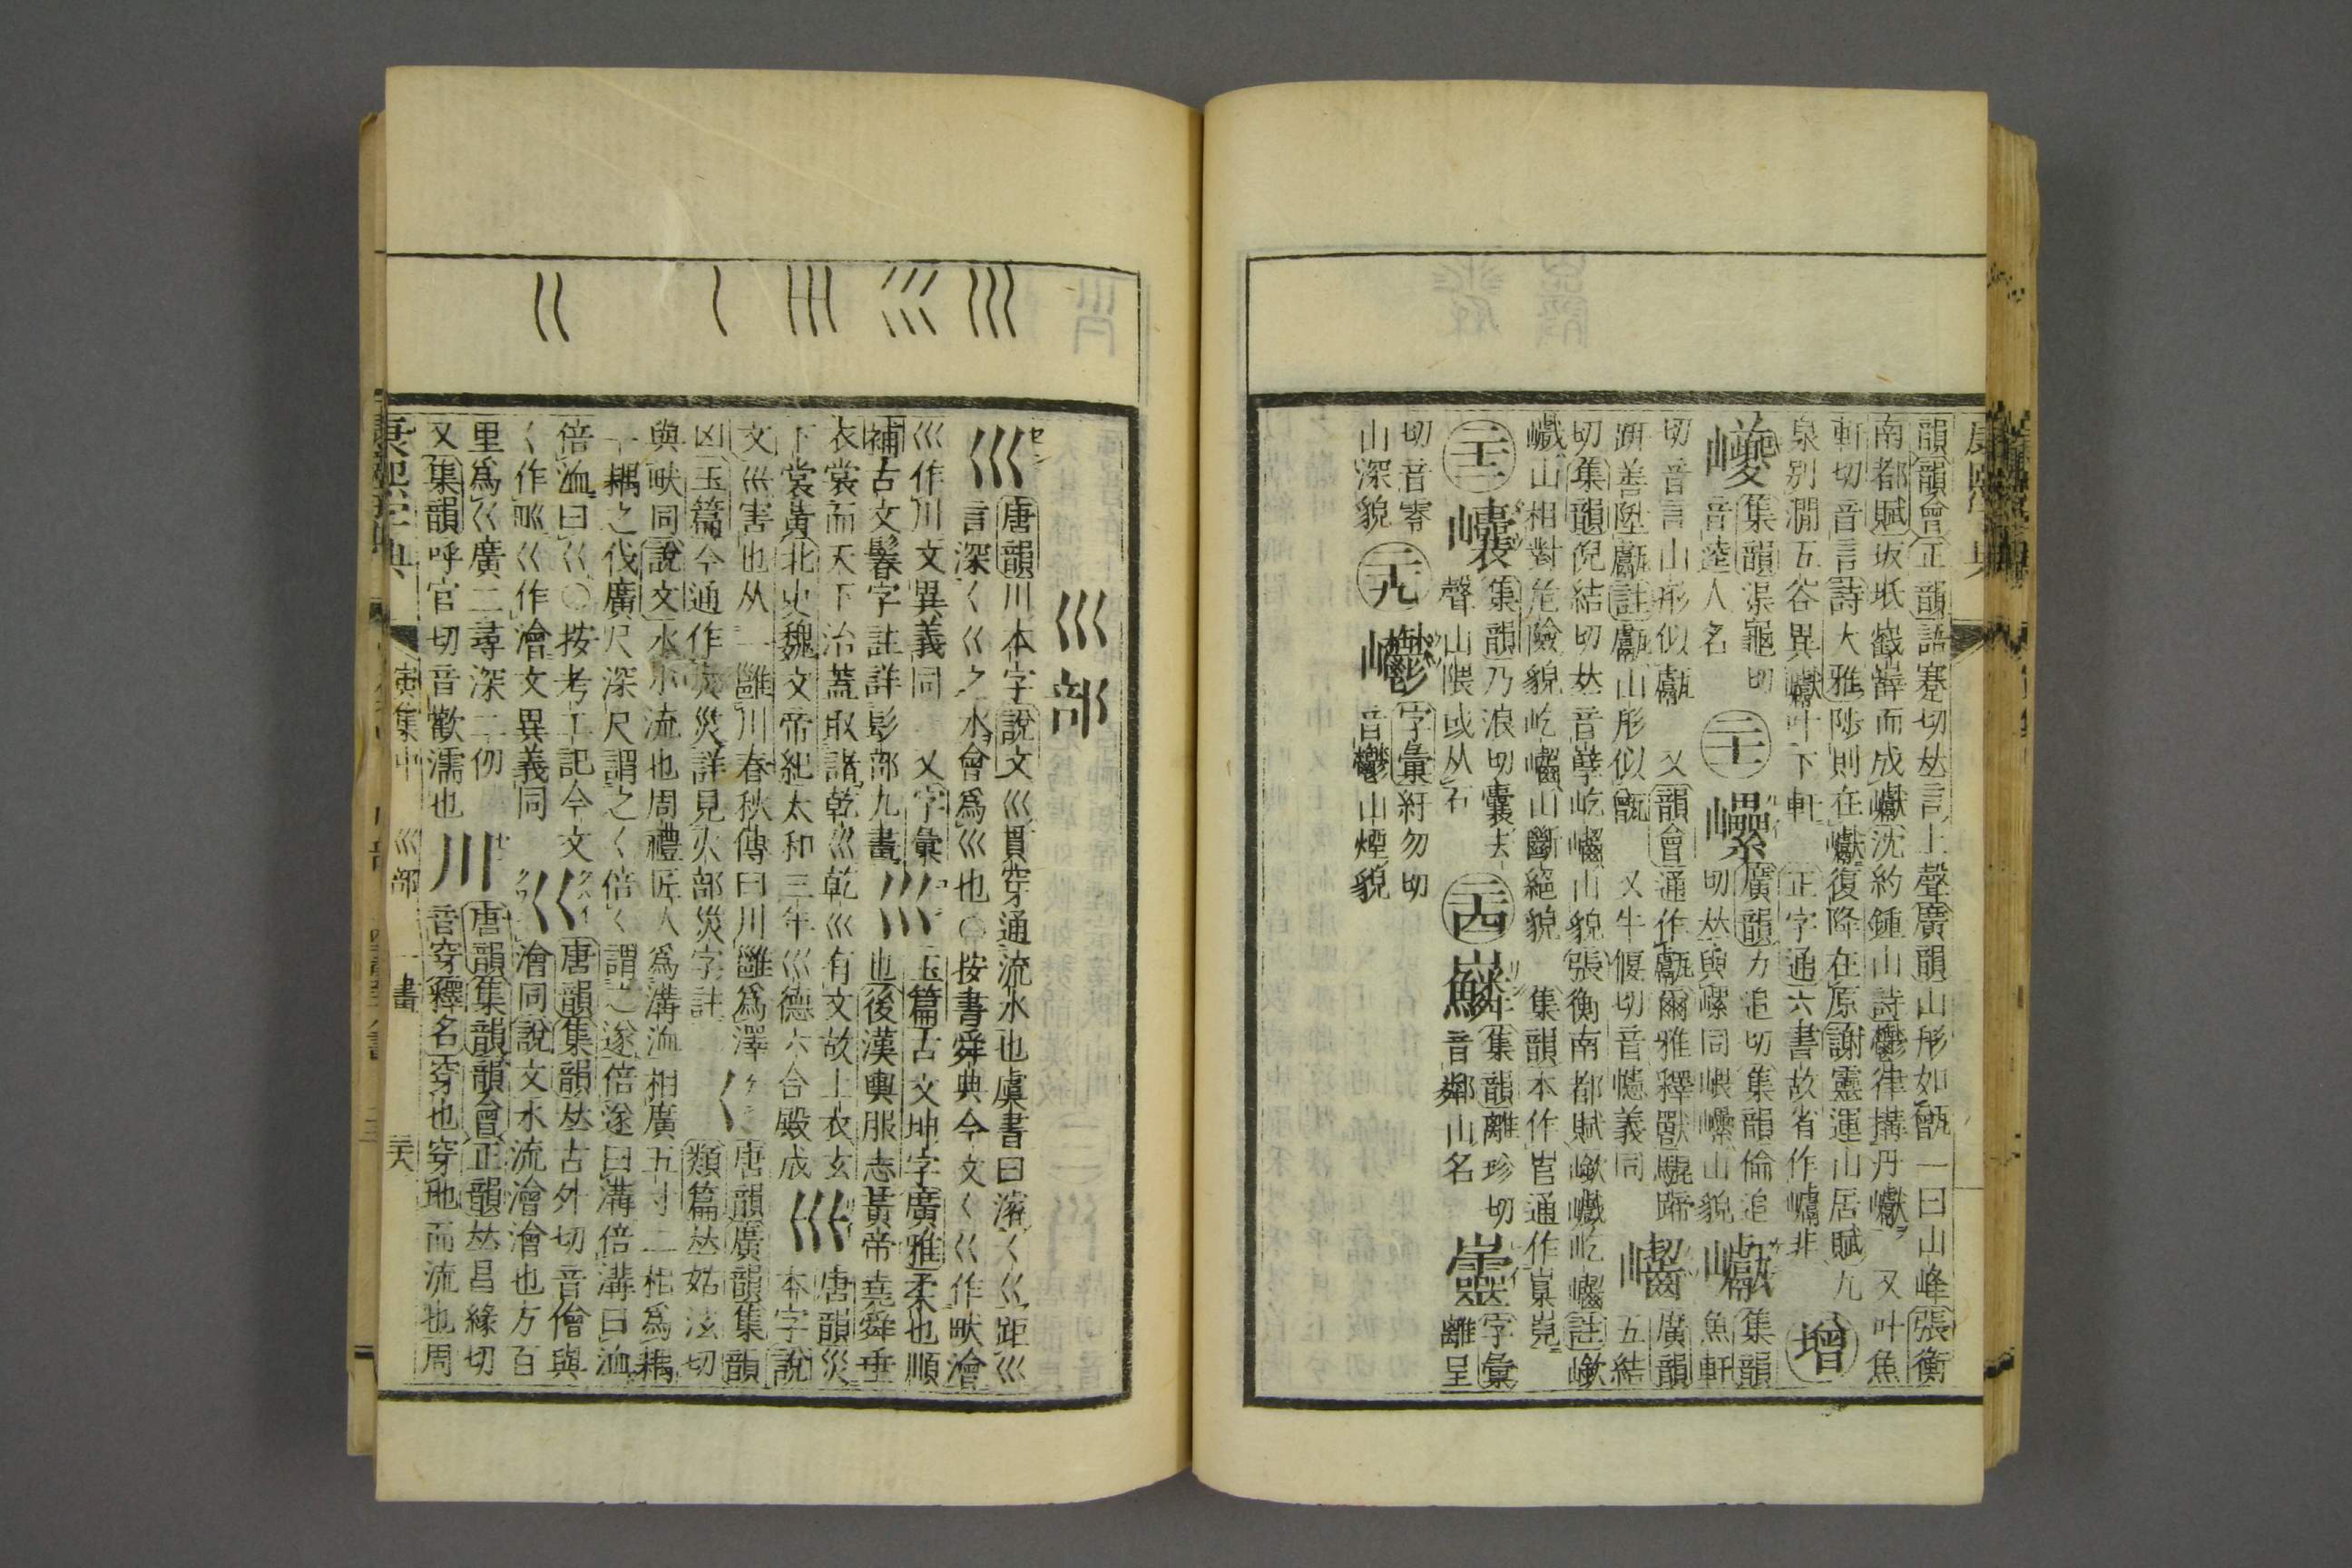 韻韻會正韻語蹇切𠀤言上聲廣韻山形如甑一曰山峰張衡
南都賦坂坻嶻嶭而成巘沈約鍾山詩鬱律搆丹巘 又叶魚
軒切音言詩大雅陟則在巘復降在原謝靈運山居賦九
泉別澗五谷異巘叶下軒 正字通六書故省作㠝非 增
巙 集韻渠龜切 二十一 廣韻力追切集韻倫追 集韻
音逵人名 切𠀤與㠥同 山貌 魚軒
切音言山形似甗 又韻會通作甗爾雅釋獸騉蹄 廣韻
趼善陞甗註甗山形似甑 又牛偃切音巘義同 五結
切集韻倪結切𠀤音孽屹㠜山貌張衡南都賦嶔巇屹㠜註嶔
巇山相對危險貌屹㠜山斷絕貌 集韻本作 通作嵲
二十二 集韻乃浪切囊去 二十四 集韻離珍切 字彙
聲山隈或从石 音鄰山名 離呈
切音零 二十九 字彙紆勿切
山深貌 音鬱山煙貌
巛部
巛 唐韻川本字說文巛貫穿通流水也虞書曰濬く巜距巛
言深く巜之水會爲巛也〇按書舜典今文く巜作畎澮
巛作川文異義同 又字彙 巛 玉篇古文坤字廣雅柔也順
補古文鬊字註詳髟部九畫 也後漢輿服志黃帝堯舜垂
衣裳而天下治蓋取諸乾巛乾巛有文故上衣玄 唐韻災
下裳黃北史魏文帝紀太和三年巛德六合殿成 本字說
文巛害也从一雝川春秋傳曰川雝爲澤 く 唐韻廣韻集韻
凶玉篇今通作烖災詳見火部災字註 類篇𠀤姑泫切
與畎同說文水小流也周禮匠人爲溝洫相廣五寸二耜爲耦
一耦之伐廣尺深尺謂之く倍く謂之遂倍遂曰溝倍溝曰洫
倍洫曰巜〇按考工記今文 巜 唐韻集韻𠀤古外切音儈與
く作𤰕巜作澮文異義同 澮同說文水流澮澮也方百
里爲巜廣二尋深二仞 川 唐韻集韻韻會正韻𠀤昌緣切
又集韻呼官切音歡濡也 音穿釋名穿也穿地而流也周
康熙字典 寅集中 巛部 一畫